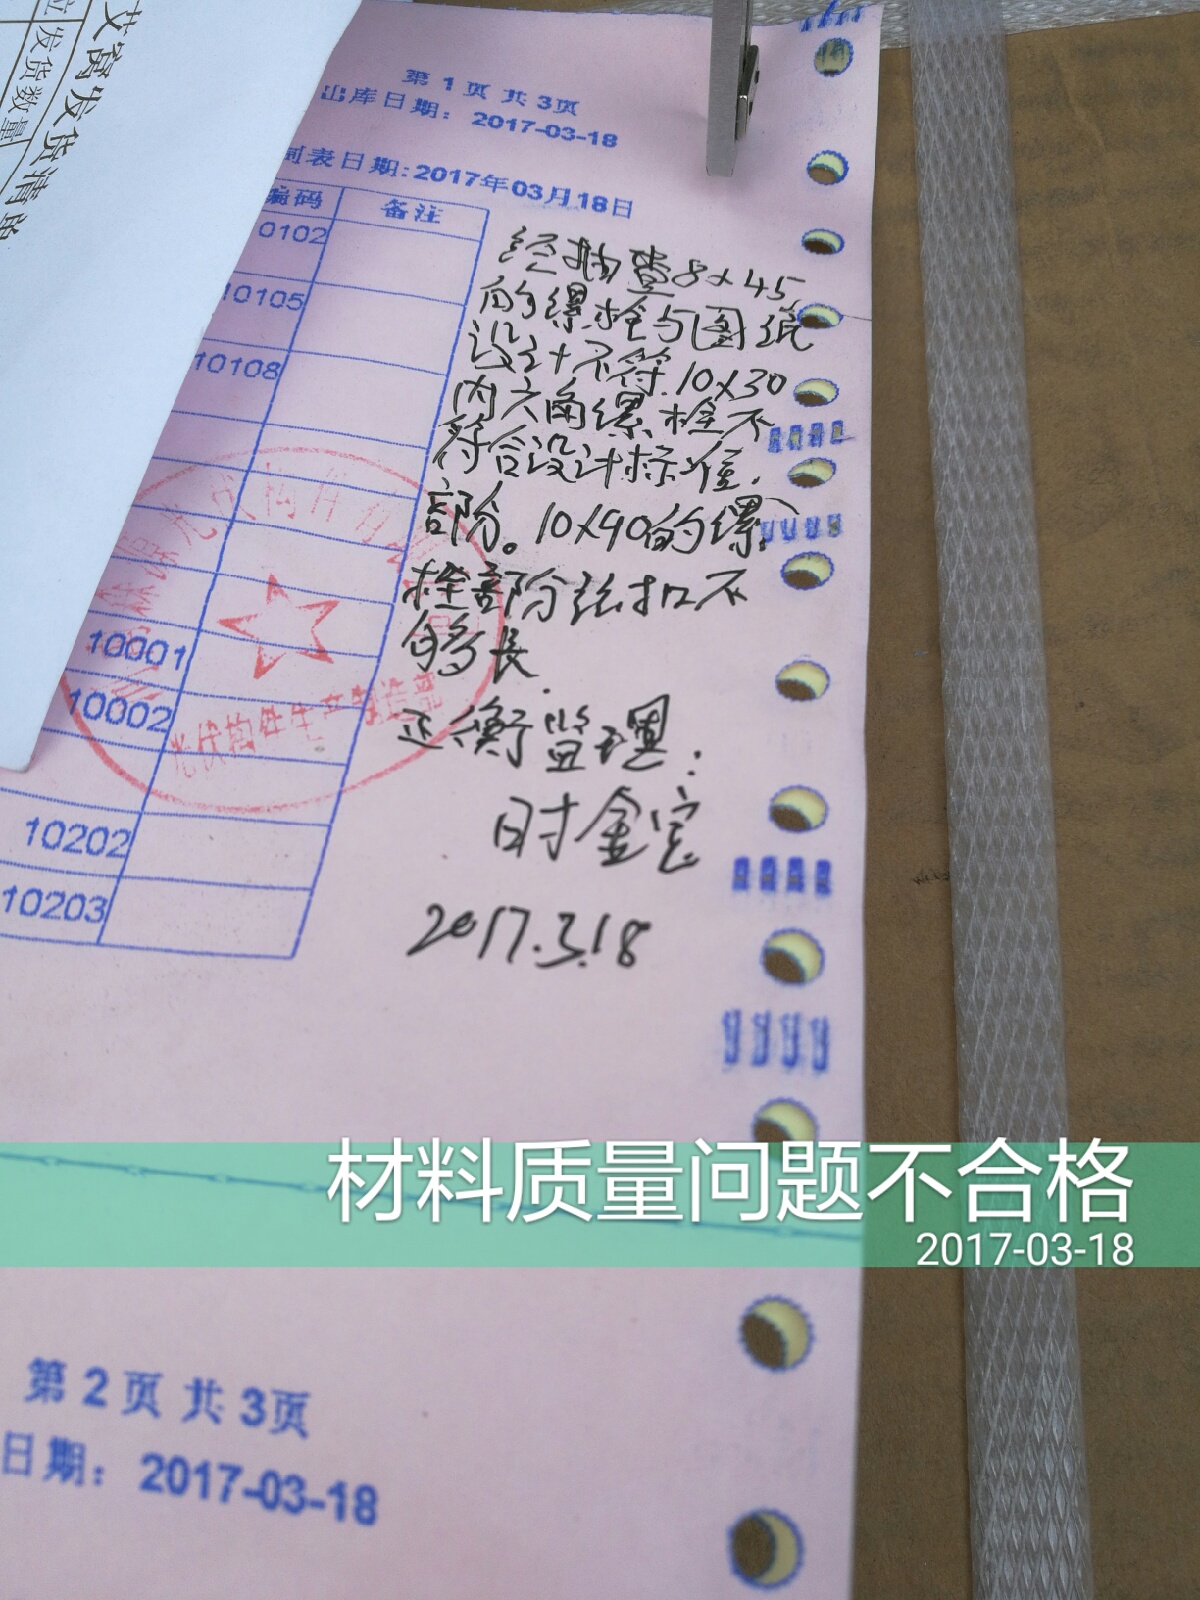 艾窝发货清单
发货数量
第 1 页 共 3页
出库日期: 2017-03-18
制表日期:2017年03月18日
编码 备注
0102
10105
10108
10001
10002
10202
10203
经抽查8×45
的缧栓与图纸
设计不符.10×30
内六角缧栓不
符合设计标准.
部份。10×90的缧
栓部份丝扣不
够长.
正衡监理:
时金宝
2017.3.18
光伏构件生产
材料质量问题不合格
2017-03-18
第 2 页 共 3页
日期: 2017-03-18